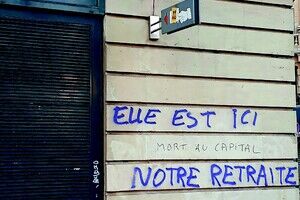 ELLE EST ICI
MORT AU CAPITAL
NOTRE RETRAITE